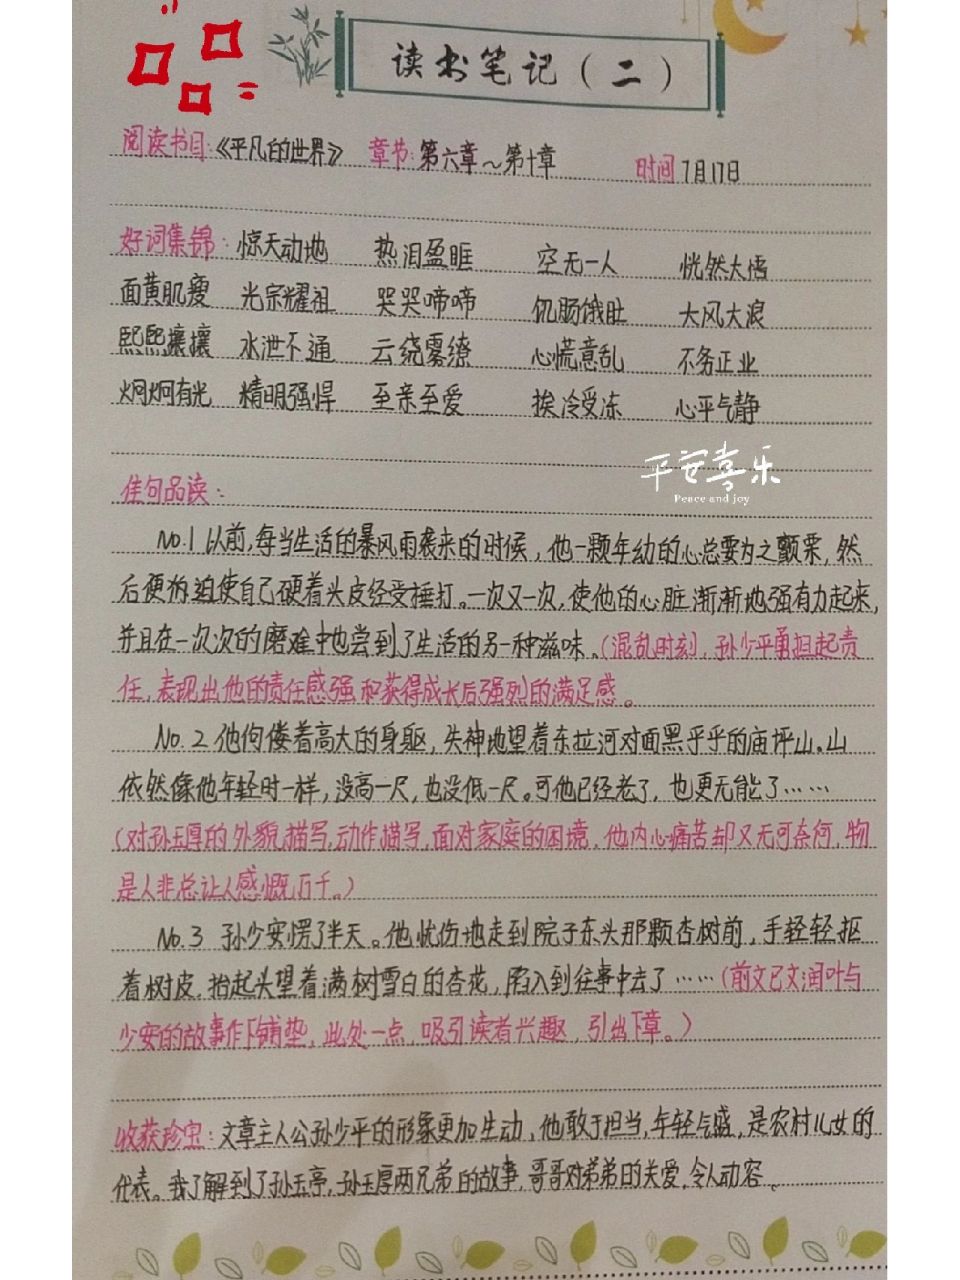 读书笔记（二）
阅读书目:《平凡的世界》 章节:第六章～第十章 时间 7月17日
好词集锦: 惊天动地 热泪盈眶 空无一人 恍然大悟
面黄肌瘦 光宗耀祖 哭哭啼啼 饥肠饿肚 大风大浪
熙熙攘攘 水泄不通 云绕雾缭 心慌意乱 不务正业
炯炯有光 精明强悍 至亲至爱 挨冷受冻 心平气静
平安喜乐
Peace and joy
佳句品读:
No.1 以前,每当生活的暴风雨袭来的时候,他一颗年幼的心总要为之颤栗,然
后便被迫使自己硬着头皮经受捶打。一次又一次,使他的心脏渐渐地强有力起来,
并且在一次次的磨难中也尝到了生活的另一种滋味。(混乱时刻,孙少平勇担起责
任,表现出他的责任感强和获得成长后强烈的满足感。
No.2 他佝偻着高大的身躯,失神地望着东拉河对面黑乎乎的庙坪山。山
依然像他年轻时一样,没高一尺,也没低一尺。可他已经老了,也更无能了……
(对孙玉厚的外貌描写,动作描写,面对家庭的困境,他内心痛苦却又无可奈何,物
是人非总让人感慨万千。)
No.3 孙少安愣了半天。他忧伤地走到院子东头那颗杏树前,手轻轻抠
着树皮,抬起头望着满树雪白的杏花,陷入到往事中去了……(前文已文润叶与
少安的故事作下铺垫,此处一点,吸引读者兴趣,引出下章。)
收获珍宝:文章主人公孙少平的形象更加生动,他敢于担当,年轻气盛,是农村儿女的
代表。我了解到了孙玉亭,孙玉厚两兄弟的故事,哥哥对弟弟的关爱,令人动容。